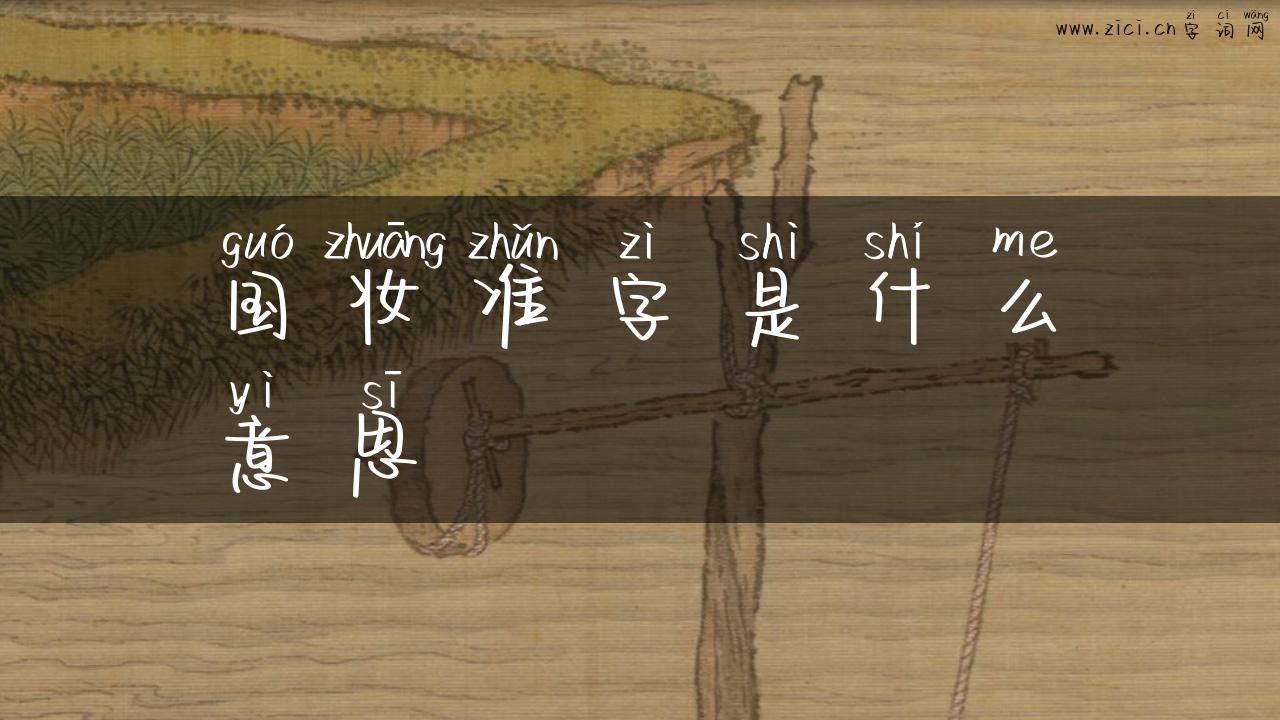 zì cí wǎng
www.zici.cn 字词网
guó zhuāng zhǔn zì shì shí me
国妆准字是什么
yì sī
意思